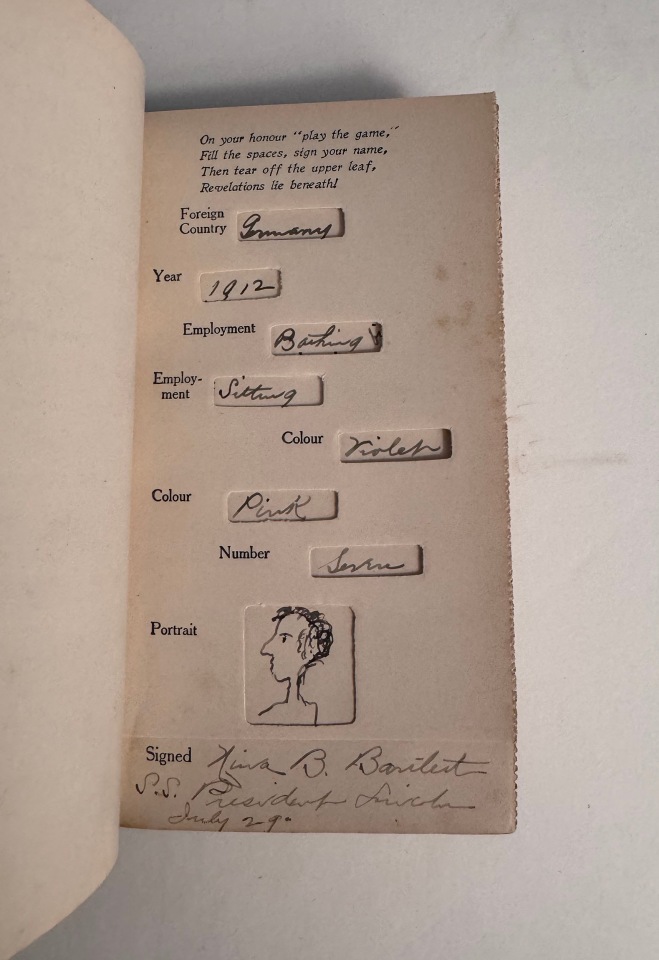 On your honour "play the game,"
Fill the spaces, sign your name,
Then tear off the upper leaf,
Revelations lie beneath!
Foreign Country Germany
Year 1912
Employment Bathing
Employ-
ment Sitting
Colour Violet
Colour Pink
Number Seven
Portrait
Signed Nina B. Bartlett
S.S. President Lincoln
July 29.